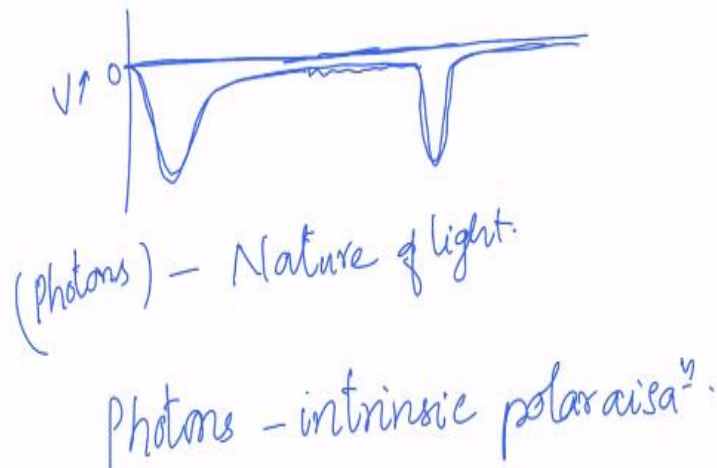 V↑ 0
(Photons) - Nature of light.
Photons - intrinsic polaraisaⁿ.